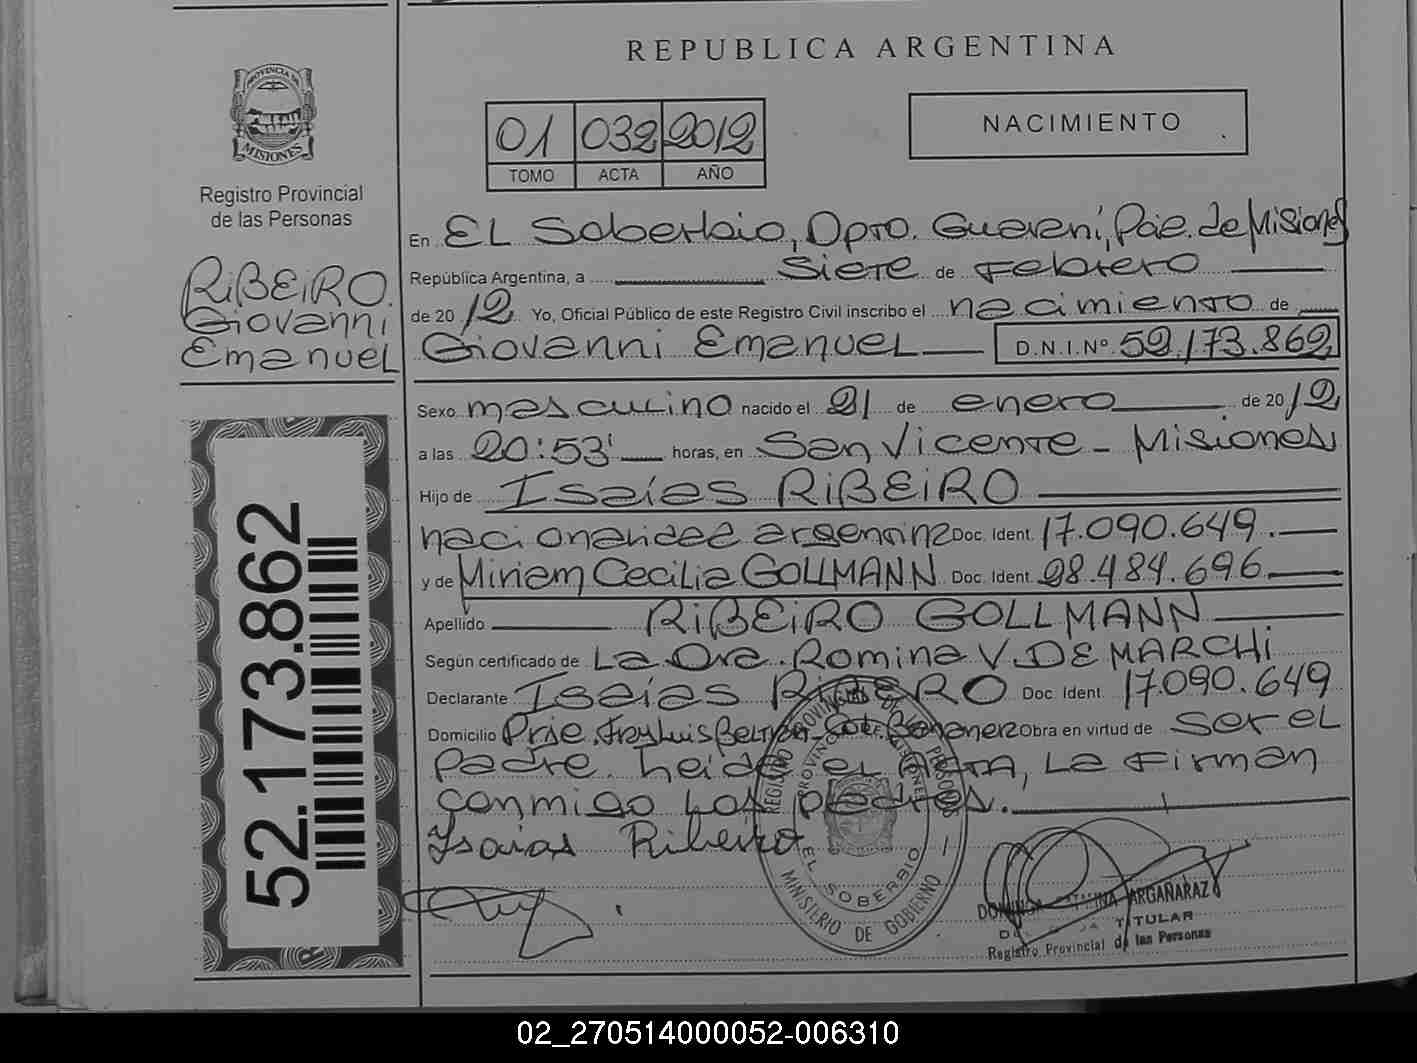 REPUBLICA ARGENTINA
PROVINCIA DE
MISIONES
Registro Provincial
de las Personas
RiBEiRO
Giovanni
Emanuel
52.173.862
01 032 2012
TOMO ACTA AÑO
NACIMIENTO
En EL Soberbio, Dpto. Guaraní, Pcia. de Misiones
República Argentina, a siete de Febrero
de 2012 Yo, Oficial Público de este Registro Civil inscribo el nacimiento de
Giovanni Emanuel D.N.I.Nº 52.173.862
Sexo masculino nacido el 21 de enero de 2012
a las 20:53' horas, en San Vicente - Misiones
Hijo de Isaías RiBEiRO
nacionalidad argentina Doc. Ident. 17.090.649.
y de Miriam Cecilia GOLLMANN Doc. Ident. 28.484.696
Apellido RiBEiRO GOLLMANN
Según certificado de La Dra. Romina V. DE MARCHi
Declarante Isaías RiBEiRO Doc. Ident. 17.090.649
Domicilio Pje. Fray Luis Beltrán - Col. Bananera Obra en virtud de ser el
padre. Leída el Acta, La Firman
conmigo los padres.
Isaias Ribeiro
REGISTRO PROVINCIAL DE LAS PERSONAS
PROVINCIA DE MISIONES
EL SOBERBIO
MINISTERIO DE GOBIERNO
ARGAÑARAZ
TITULAR
Registro Provincial de las Personas
02_270514000052-006310